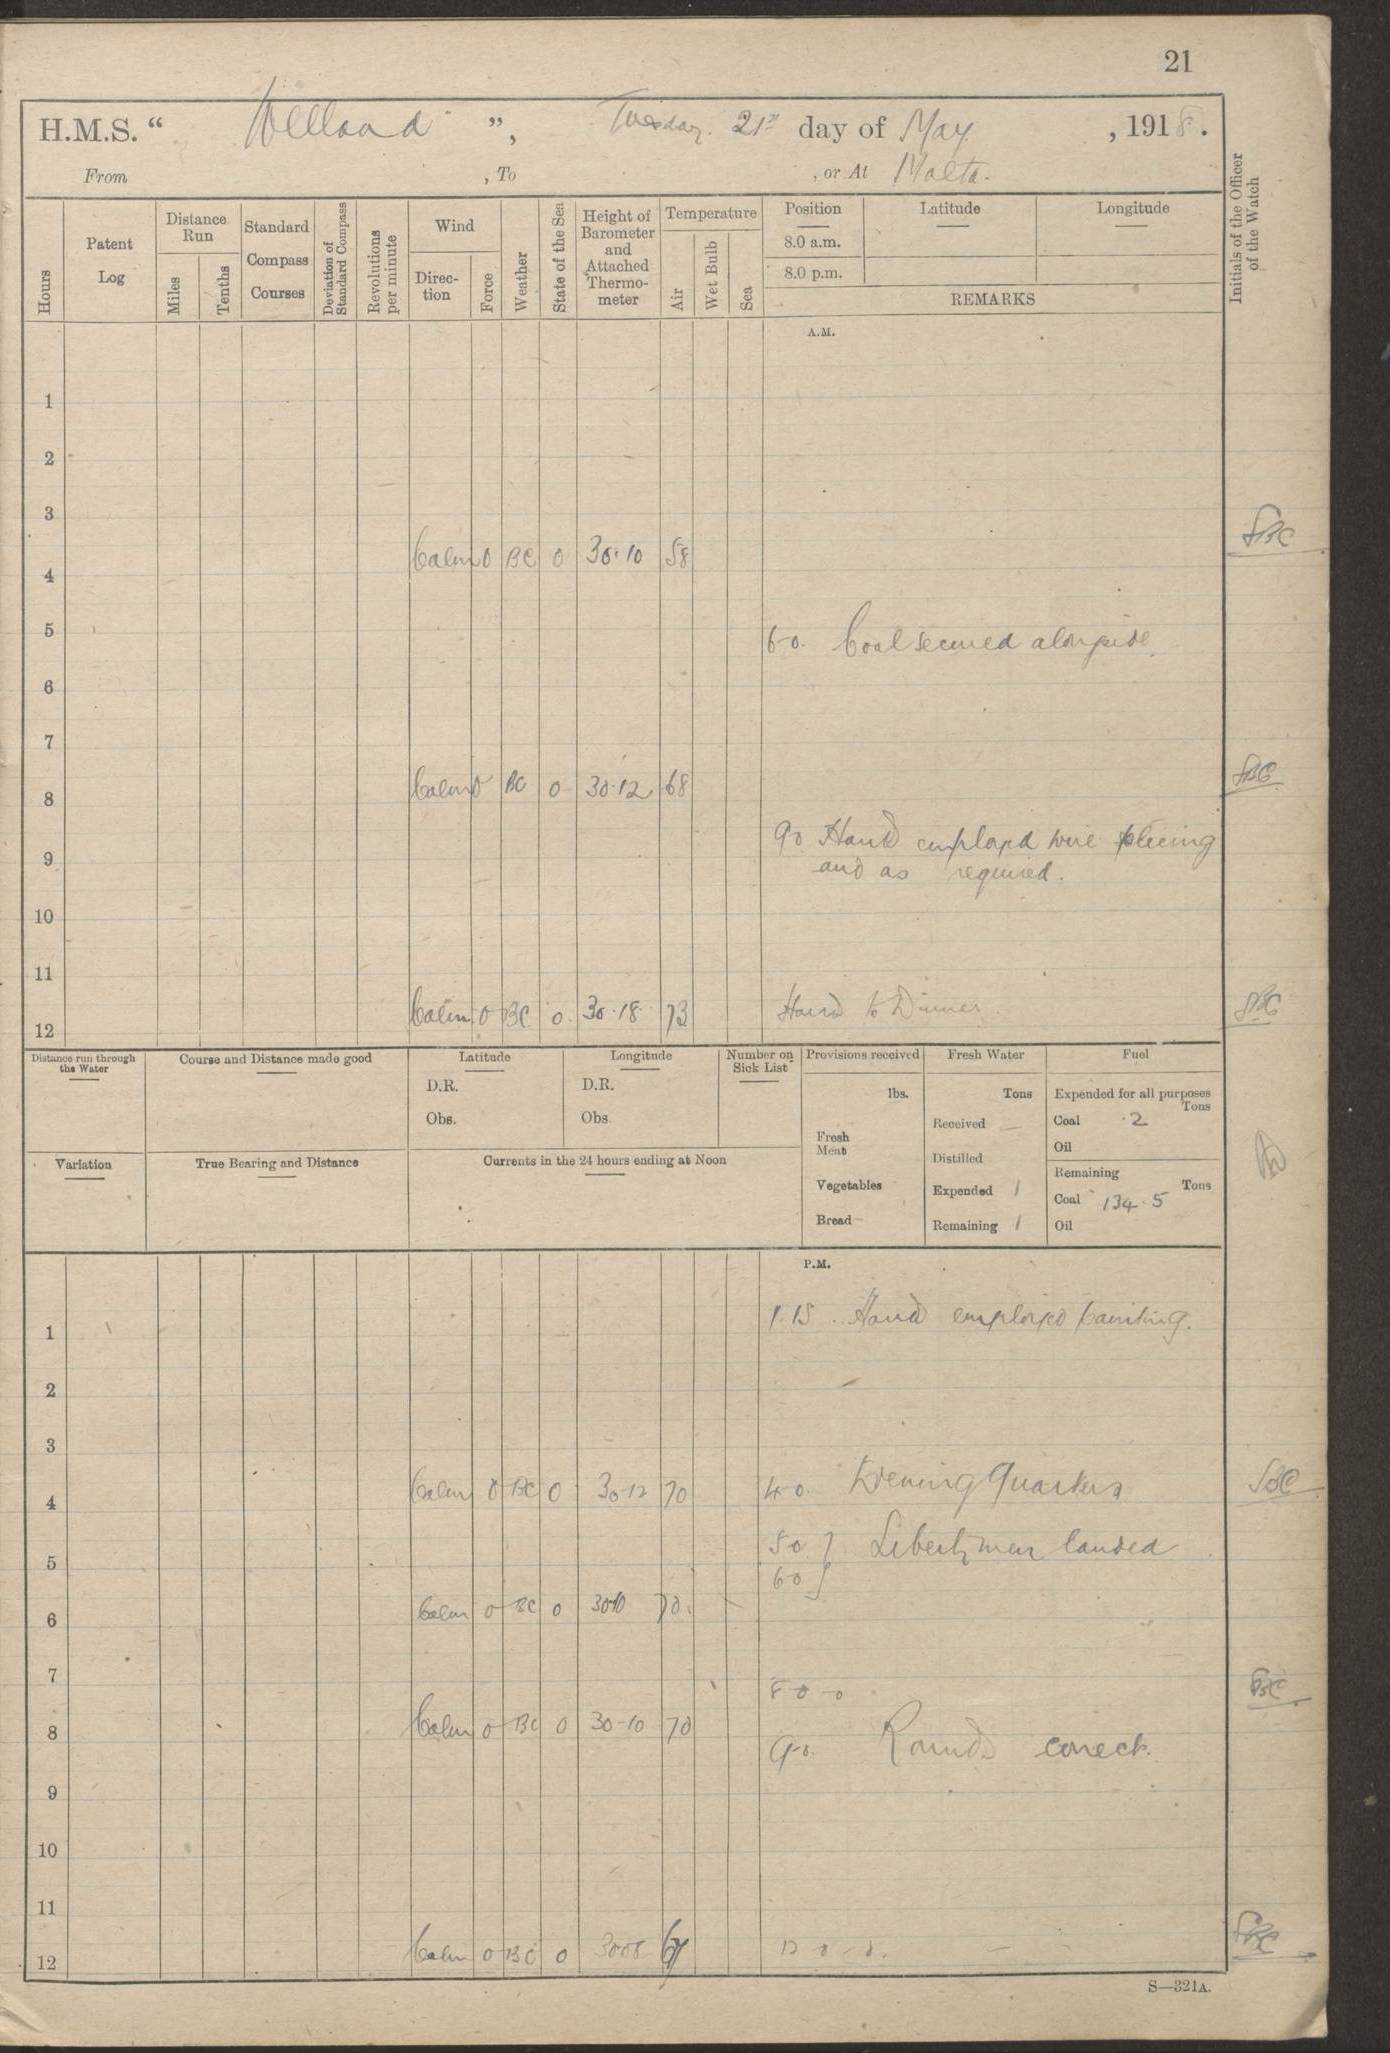 21
H.M.S. “ Welland ”, Tuesday. 21st day of May , 1918.
From , To , or At Malta.
Hours
Patent Log
Distance Run
Miles
Tenths
Standard Compass Courses
Deviation of Standard Compass
Revolutions per minute
Wind
Direction
Force
Weather
State of the Sea
Height of Barometer and Attached Thermometer
Temperature
Air
Wet Bulb
Sea
Position Latitude Longitude
8.0 a.m.
8.0 p.m.
REMARKS
Initials of the Officer of the Watch
A.M.
1
2
3
4 Calm 0 BC 0 30.10 58 SBC
5 60. Coal secured alongside.
6
7
8 Calm 0 BC 0 30.12 68 SBC
9 90 Hands employed wire splicing
and as required.
10
11
12 Calm 0 BC 0 30.18 73 Hands to Dinner SBC
Distance run through the Water
Course and Distance made good
Latitude
D.R.
Obs.
Longitude
D.R.
Obs.
Number on Sick List
Provisions received
lbs.
Fresh Meat
Vegetables
Bread
Fresh Water
Tons
Received —
Distilled
Expended 1
Remaining 1
Fuel
Expended for all purposes
Tons
Coal .2
Oil
Remaining
Tons
Coal 134.5
Oil
Variation
True Bearing and Distance
Currents in the 24 hours ending at Noon
P.M.
1 1.15. Hands employed painting.
2
3
4 Calm 0 BC 0 30-12 70 4-0. Evening Quarters SBC
5 50 } Liberty men landed
60 }
6 Calm 0 BC 0 30-10 70.
7 8-0-0 SBC
8 Calm 0 BC 0 30-10 70
9-0. Rounds correct.
9
10
11
12 Calm 0 BC 0 3008 67 SBC
S—321A.